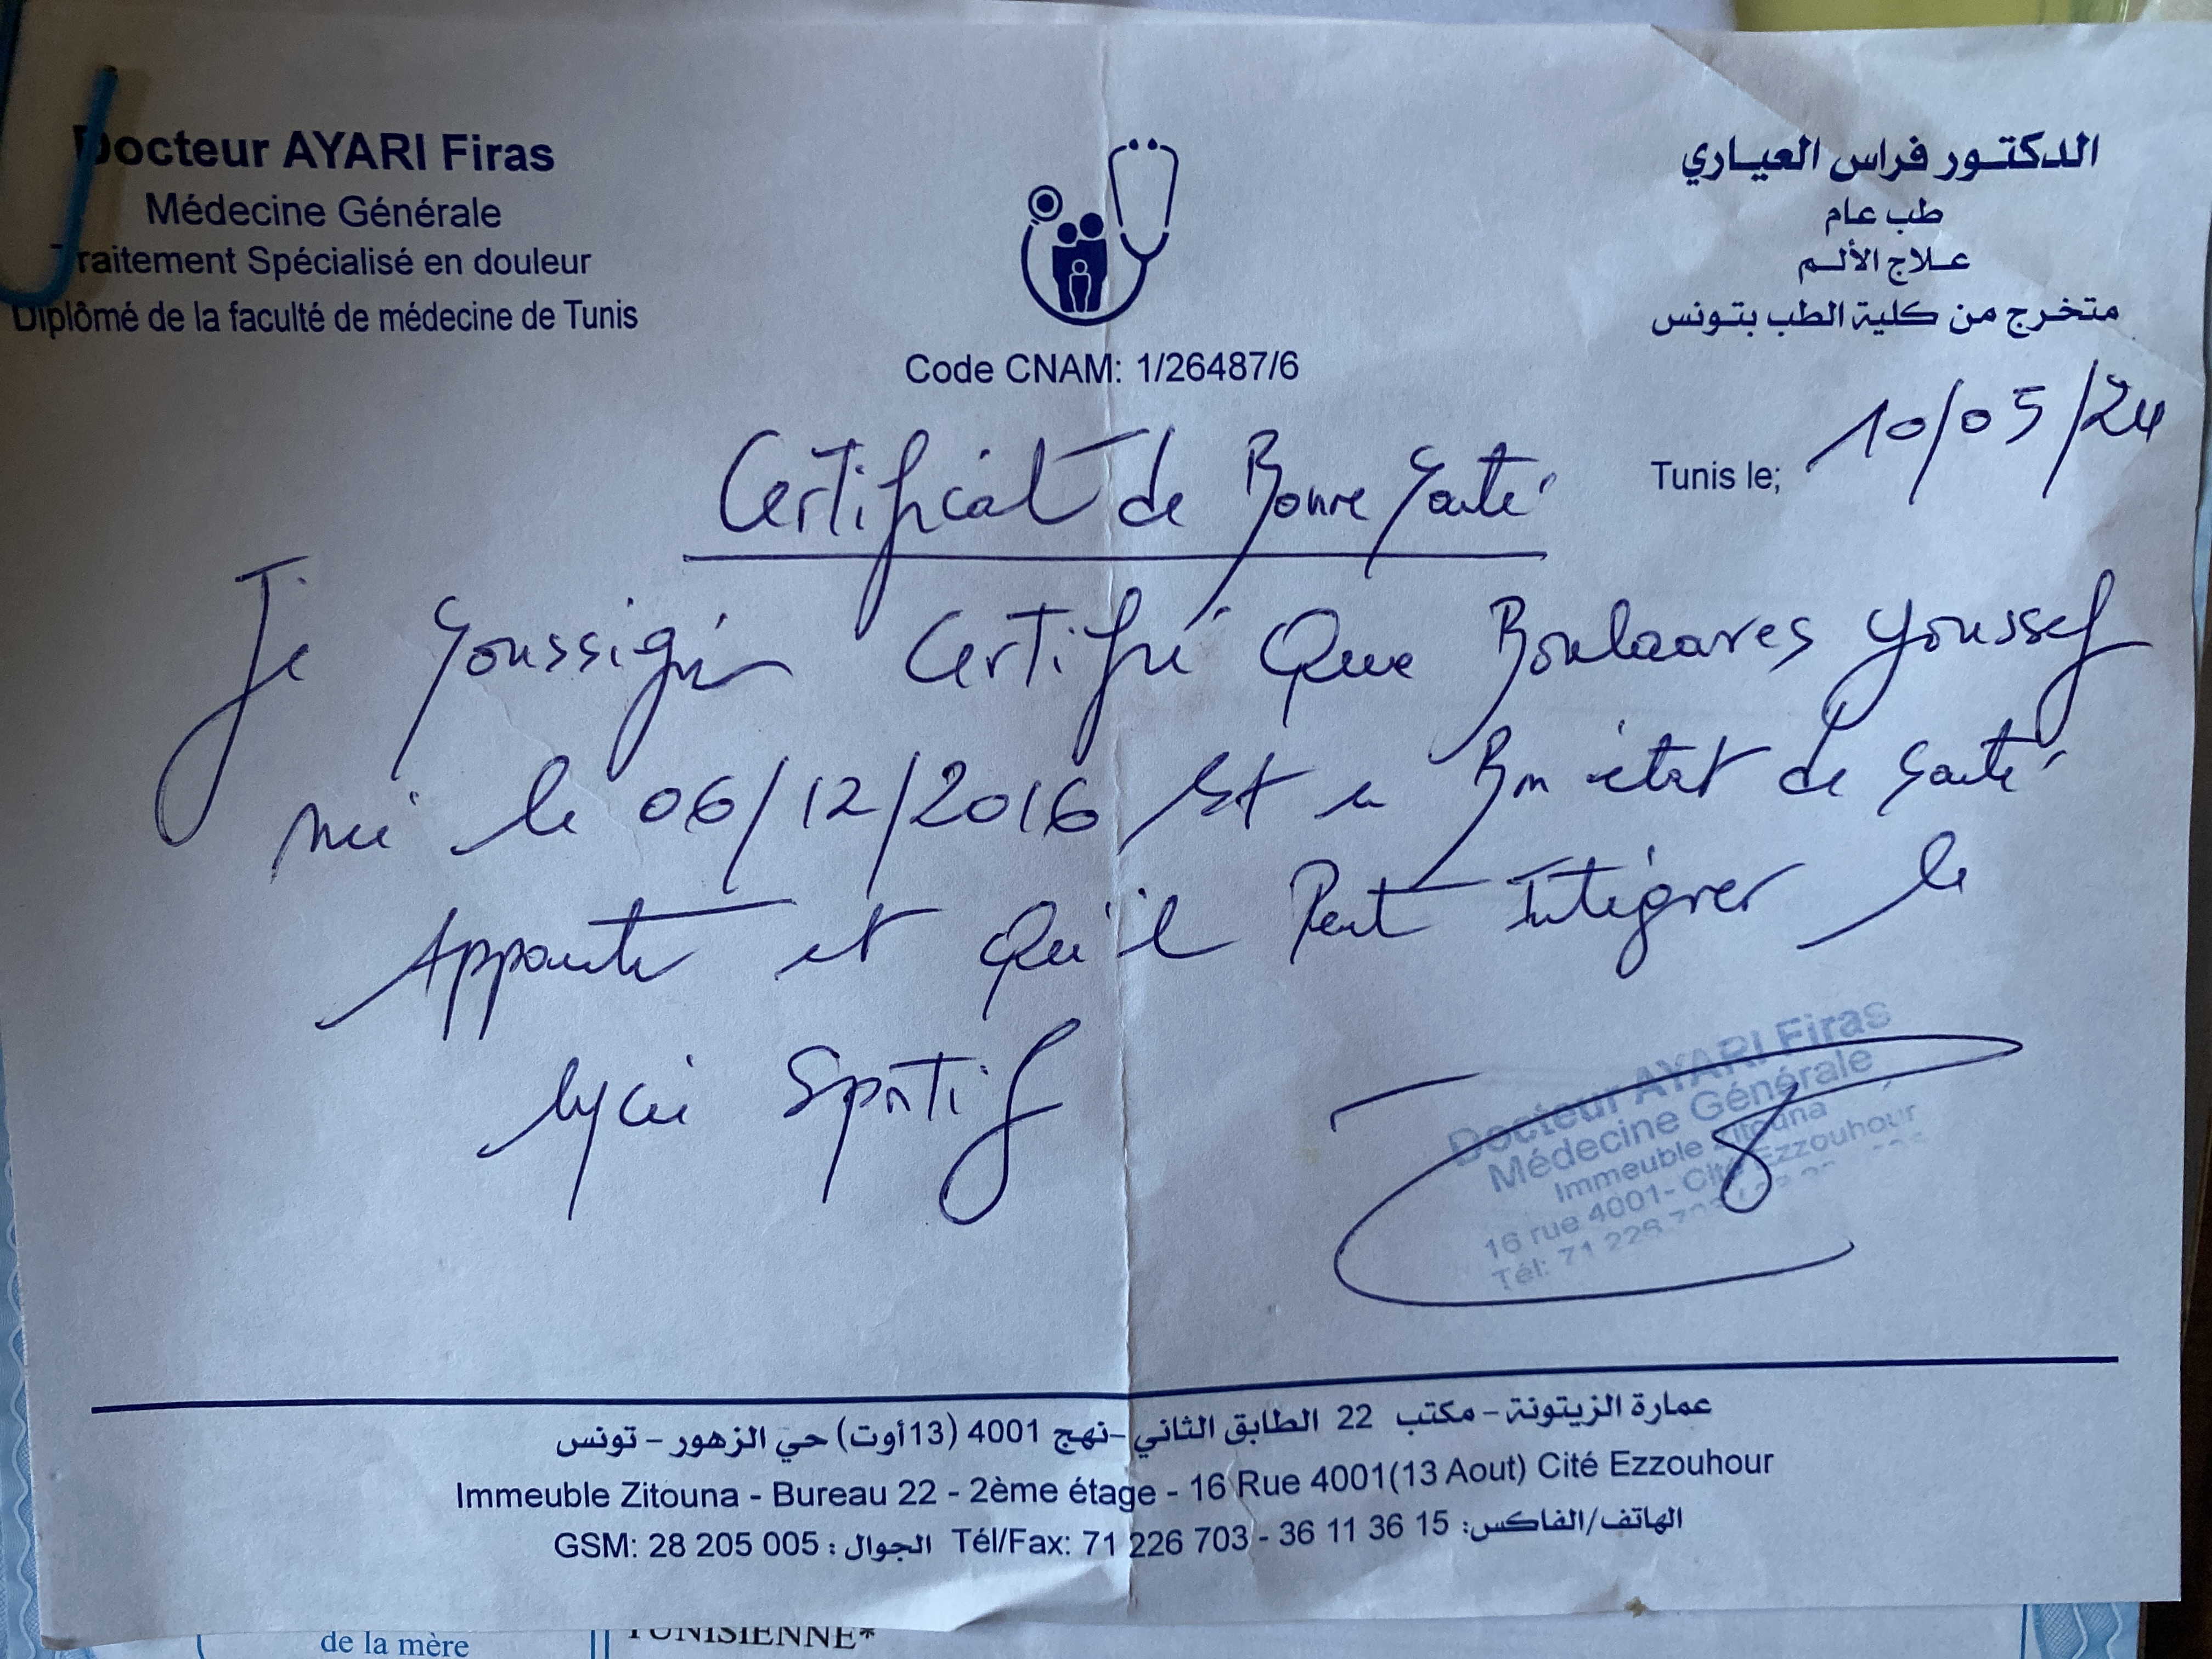 Docteur AYARI Firas
Médecine Générale
Traitement Spécialisé en douleur
Diplômé de la faculté de médecine de Tunis
الدكتور فراس العياري
طب عام
علاج الألم
متخرج من كلية الطب بتونس
Code CNAM: 1/26487/6
Tunis le; 10/05/24
Certificat de Bonne Santé
Je soussigné Certifié Que Boulaares Youssef
né le 06/12/2016 Est en Bon état de santé
Apparente et Qu'il Peut Intégrer le
lycée Sportif
Docteur AYARI Firas
Médecine Générale
Immeuble Zitouna
16 rue 4001- Cité Ezzouhour
Tél: 71 226
عمارة الزيتونة - مكتب 22 الطابق الثاني - نهج 4001 (13 أوت) حي الزهور - تونس
Immeuble Zitouna - Bureau 22 - 2ème étage - 16 Rue 4001(13 Aout) Cité Ezzouhour
GSM: 28 205 005 : الجوال Tél/Fax: 71 226 703 - 36 11 36 15 :الهاتف/الفاكس
de la mère
TUNISIENNE*